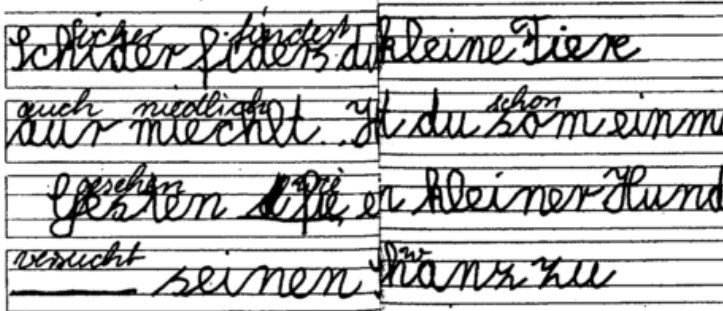 sicher findest
Schider fiders du kleine Tiere
auch niedlich schon
aur miechlt. . Jt du som einm
gesehen wie
Gesten fie, er kleiner Hund
versucht w
seinen Shanz zu